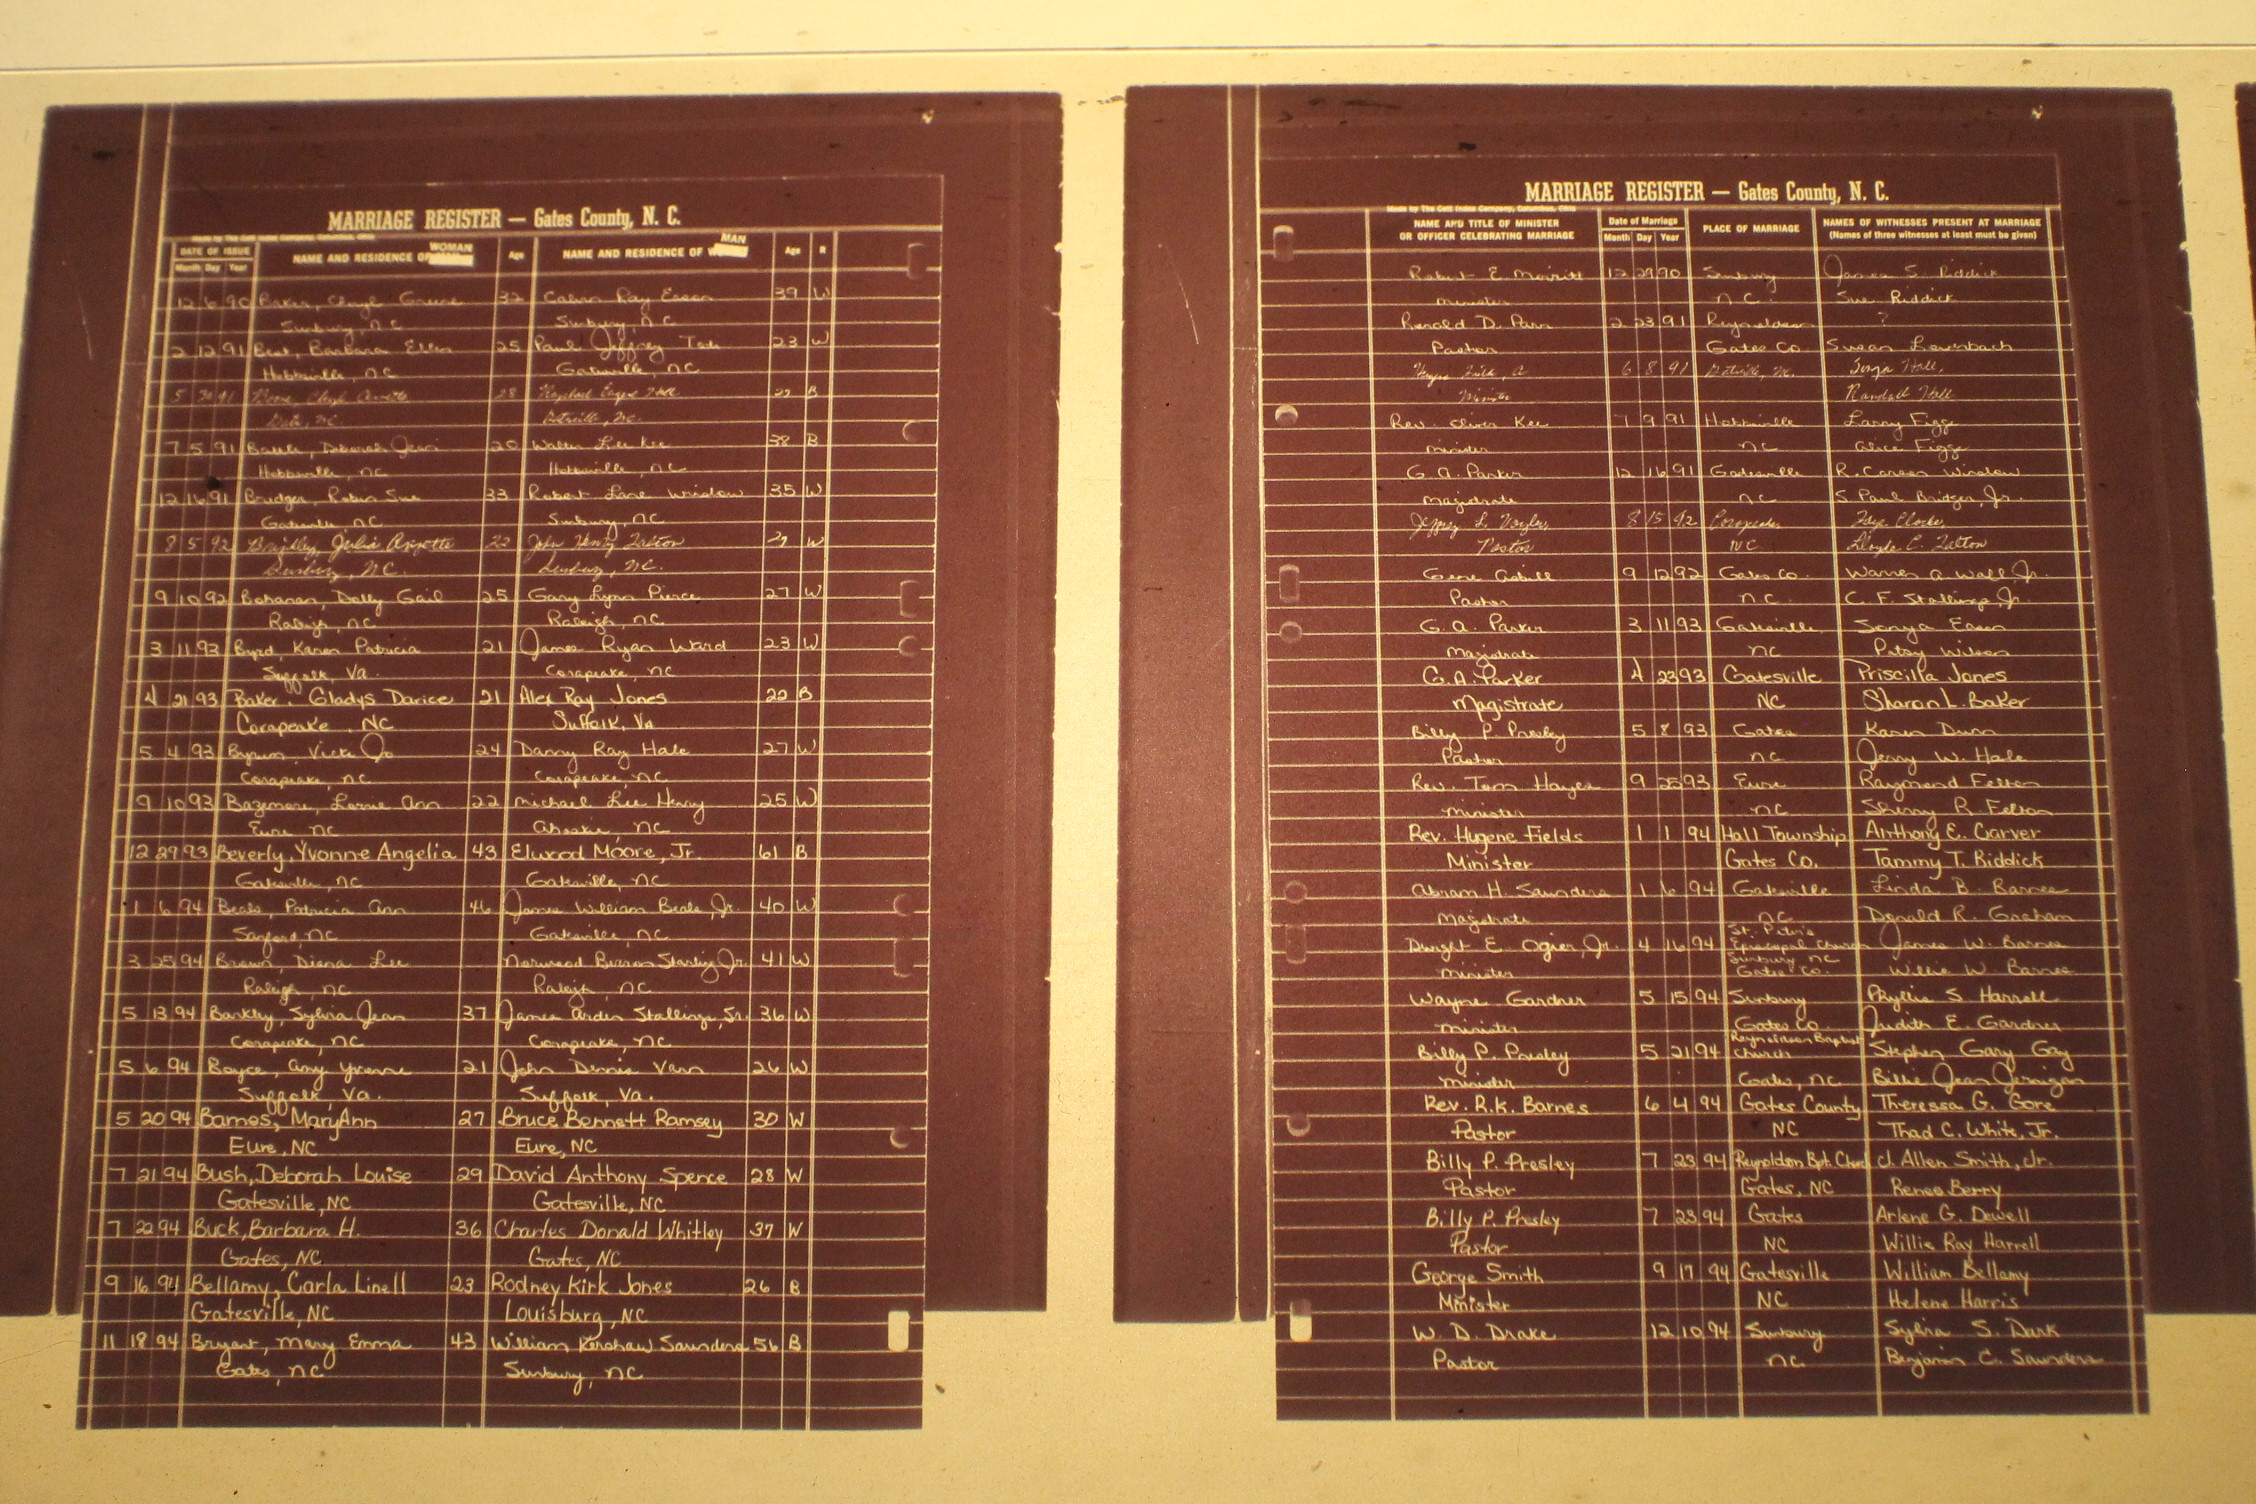 MARRIAGE REGISTER — Gates County, N. C.
Made by The Cott Index Company, Columbus, Ohio
DATE OF ISSUE NAME AND RESIDENCE OF WOMAN Age NAME AND RESIDENCE OF MAN Age R
Month Day Year
12 6 90 Baker, Cheryl Greene 32 Calvin Ray Eason 39 W
Sunbury, NC Sunbury, NC
2 12 91 Barbara Ellen 25 Paul Jeffrey 23 W
Hobbsville, NC Gatesville, NC
5 91 28 Hall 29 B
NC Gatesville, NC.
7 5 91 Deborah Jean 20 Walter Lee Kee 38 B
Hobbsville, NC Hobbsville, NC
12 16 91 Bridger, Robin Sue 33 Robert Lane Winslow 35 W
Gatesville, NC Sunbury, NC
8 5 92 Julia Annette 22 John Henry 29 W
Sunbury, NC. Sunbury, NC.
9 10 92 Bohanan, Dolly Gail 25 Gary Lynn Pierce 27 W
Raleigh, NC Raleigh, NC
3 11 93 Byrd, Karen Patricia 21 James Ryan Ward 23 W
Suffolk, Va. Corapeake, NC
4 21 93 Baker, Gladys Darice 21 Alex Ray Jones 22 B
Corapeake, NC Suffolk, VA
5 4 93 Byrum, Vicki Jo 24 Danny Ray Hale 27 W
Corapeake, NC Corapeake, NC
9 10 93 Bazemore, Lorrie Ann 22 Michael Lee Henry 25 W
Eure, NC Ahoskie, NC
12 29 93 Beverly, Yvonne Angelia 43 Elwood Moore, Jr. 61 B
Gatesville, NC Gatesville, NC
1 6 94 Beals, Patricia Ann 46 James William Beale, Jr. 40 W
Sanford, NC Gatesville, NC
3 25 94 Brown, Diana Lee Norwood Starling Jr. 41 W
Raleigh, NC Raleigh, NC
5 13 94 Barkley, Sylvia Jean 37 James Arden Stallings, Sr. 36 W
Corapeake, NC Corapeake, NC
5 6 94 Boyce, Amy Yvonne 21 John Dennis Vann 26 W
Suffolk, Va. Suffolk, Va.
5 20 94 Barnes, MaryAnn 27 Bruce Bennett Ramsey 30 W
Eure, NC Eure, NC
7 21 94 Bush, Deborah Louise 29 David Anthony Spence 28 W
Gatesville, NC Gatesville, NC
7 22 94 Buck, Barbara H. 36 Charles Donald Whitley 37 W
Gates, NC Gates, NC
9 16 94 Bellamy, Carla Linell 23 Rodney Kirk Jones 26 B
Gatesville, NC Louisburg, NC
11 18 94 Bryant, Mary Emma 43 William Kershaw Saunders 56 B
Gates, NC Sunbury, NC
MARRIAGE REGISTER — Gates County, N. C.
Made by The Cott Index Company, Columbus, Ohio
NAME AND TITLE OF MINISTER OR OFFICER CELEBRATING MARRIAGE Date of Marriage PLACE OF MARRIAGE NAMES OF WITNESSES PRESENT AT MARRIAGE
Month Day Year (Names of three witnesses at least must be given)
Robert E. Merritt 12 29 90 Sunbury James S. Riddick
Minister N.C. Sue Riddick
Ronald D. Parr 2 23 91 Reynoldson ?
Pastor Gates Co Susan Lauenbach
6 8 91 Gatesville, NC. Hall,
Minister Randall Hall
Rev. Oliver Kee 7 9 91 Hobbsville Larry Figgs
Minister NC Alice Figgs
G. A. Parker 12 16 91 Gatesville R. Carson Winslow
Magistrate NC S. Paul Bridger, Jr.
Jeffrey L. 8 15 92 Corapeake Faye Clarke,
Pastor NC Lloyd C.
Gene 9 12 92 Gates Co. Warren A. Wall, Jr.
Pastor N.C. C. F. Stallings, Jr.
G. A. Parker 3 11 93 Gatesville Sonya Eason
Magistrate NC Patsy Wilson
G. A. Parker 4 23 93 Gatesville Priscilla Jones
Magistrate NC Sharon L. Baker
Billy P. Presley 5 8 93 Gates Karen Dunn
Pastor NC Jerry W. Hale
Rev. Tom Hayes 9 25 93 Eure Raymond Felton
Minister NC Sherry R. Felton
Rev. Hugene Fields 1 1 94 Hall Township Anthony E. Carver
Minister Gates Co. Tammy T. Riddick
Abram H. Saunders 1 6 94 Gatesville Linda B. Barnes
Magistrate NC Donald R. Graham
Dwight E. Ogier, Jr. 4 16 94 St. Peter's Episcopal Church James W. Barnes
Minister Sunbury, NC Gates Co. Willie W. Barnes
Wayne Gardner 5 15 94 Sunbury Phyllis S. Harrell
Minister Gates Co. Judith E. Gardner
Billy P. Presley 5 21 94 Reynoldson Baptist Church Stephen Gary Gay
Minister Gates, NC Billie Jean Jernigan
Rev. R.K. Barnes 6 4 94 Gates County Theressa G. Gore
Pastor NC Thad C. White, Jr.
Billy P. Presley 7 23 94 Reynoldson Bpt. Church J. Allen Smith, Jr.
Pastor Gates, NC Renee Berry
Billy P. Presley 7 23 94 Gates Arlene G. Dewell
Pastor NC Willie Ray Harrell
George Smith 9 17 94 Gatesville William Bellamy
Minister NC Helene Harris
W. D. Drake 12 10 94 Sunbury Sylvia S. Dark
Pastor NC Benjamin C. Saunders